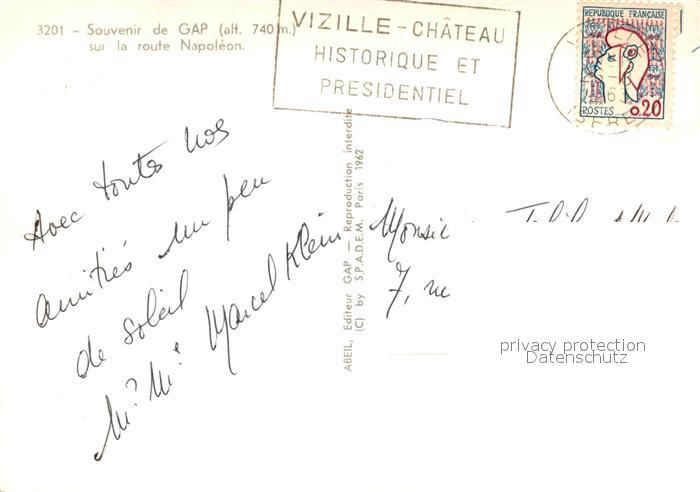 3201 - Souvenir de GAP (alt. 740 m.)
sur la route Napoléon.
VIZILLE - CHÂTEAU
HISTORIQUE ET
PRESIDENTIEL
REPUBLIQUE FRANÇAISE
POSTES 0,20
ISERE
Avec toutes nos
amitiés un peu
de soleil
Mr Me Marcel Klein
ABEIL, Editeur GAP — Reproduction interdite
(C) by S.P.A.D.E.M. Paris 1962
Monsie
7, rue
privacy protection
Datenschutz